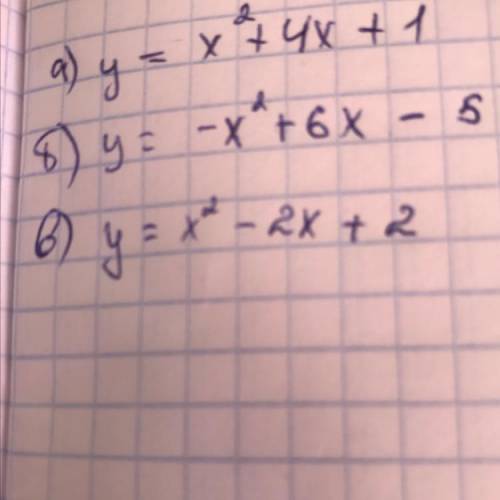 а) y = x² + 4x + 1
б) y = -x² + 6x - 5
в) y = x² - 2x + 2